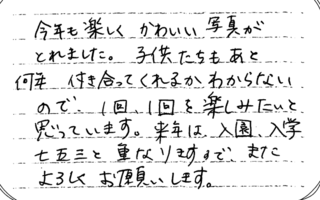 今年も楽しく かわいい 写真が
とれました。 子供たちもあと
何年 付き合ってくれるか わからない
ので、1回、1回を楽しみたいと
思っています。来年は、入園、入学
七五三と 重なりますので、また
よろしく お願いします。